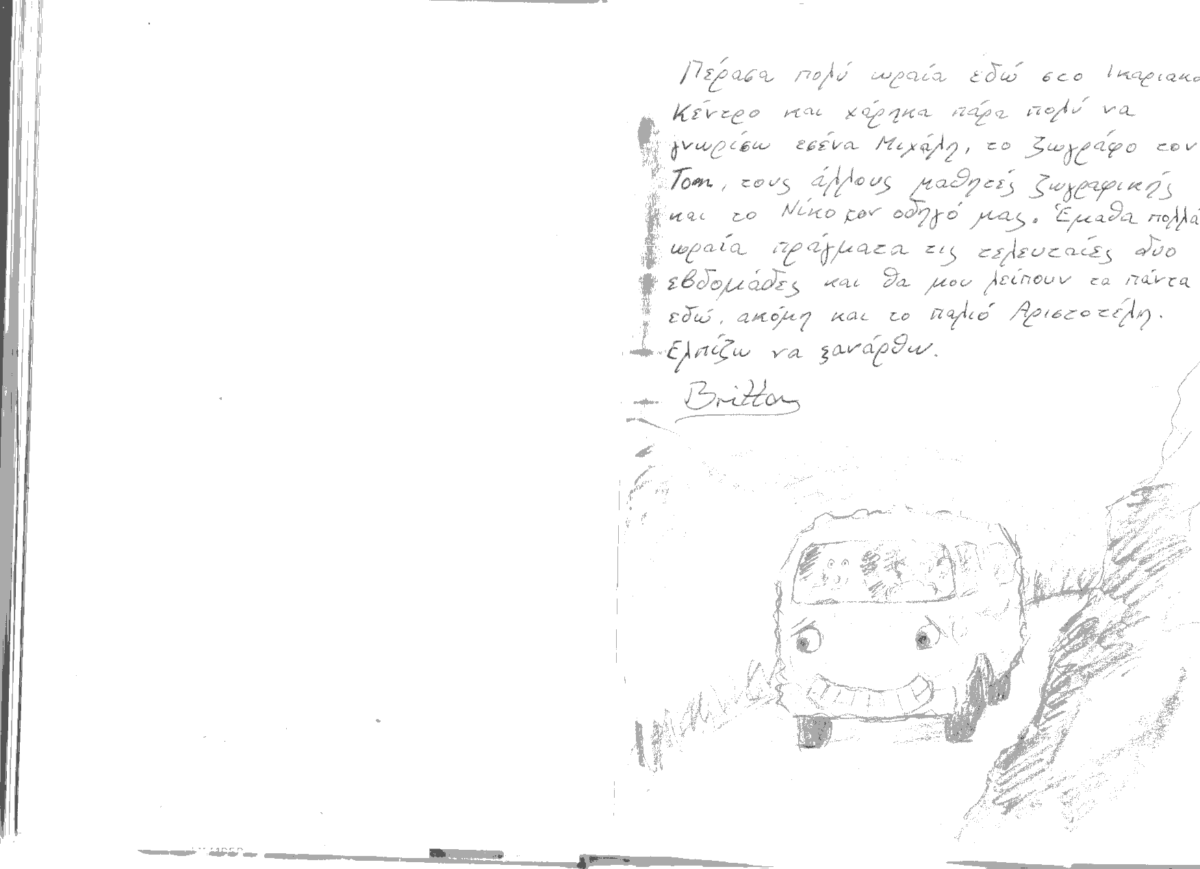 Πέρασα πολύ ωραία εδώ στο Ικαριακο
Κέντρο και χάρηκα πάρα πολύ να
γνωρίσω εσένα Μιχάλη, το ζωγράφο τον
Tom, τους άλλους μαθητές ζωγραφικής
και το Νίκο τον οδηγό μας. Έμαθα πολλά
ωραία πράγματα τις τελευταίες δυο
εβδομάδες και θα μου λείπουν τα πάντα
εδώ, ακόμη και το παλιό Αριστοτέλη.
Ελπίζω να ξανάρθω.
Britton